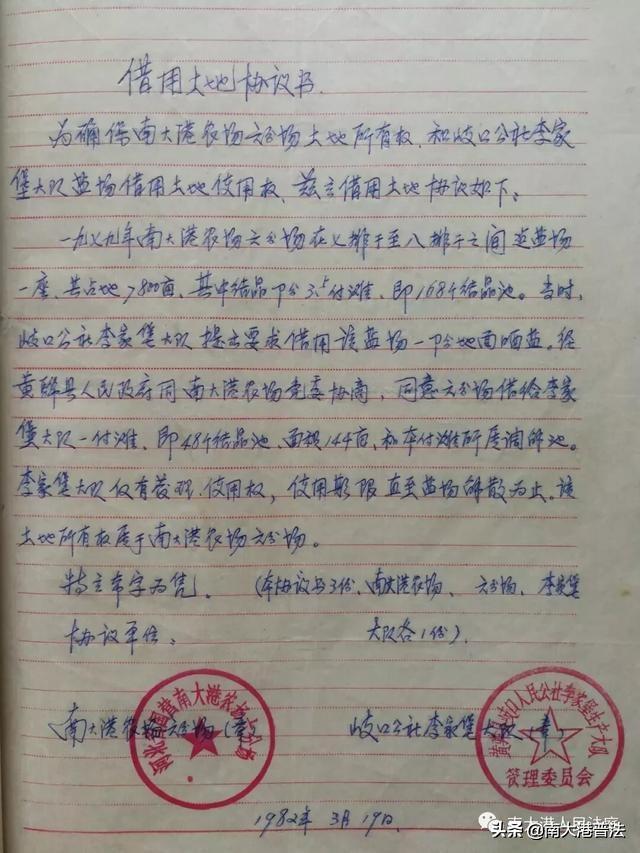 借用土地协议书
为确保南大港农场六分场土地所有权、和岐口公社李家
堡大队盐场借用土地使用权、兹立借用土地协议如下:
一九七九年南大港农场六分场在七排干至八排干之间建盐场
一座、共占地7800亩、其中结晶部分3.5付滩、即168个结晶池。当时,
岐口公社李家堡大队提出要求借用该盐场一部分地面晒盐。经
黄骅县人民政府同南大港农场党委协商,同意六分场借给李家
堡大队一付滩、即48个结晶池、面积144亩、和本付滩所属调节池。
李家堡大队仅有管理、使用权,使用期限直至盐场解散为止。该
土地所有权属于南大港农场六分场。
特立本字为凭。(本协议书3份、南大港农场、六分场、李家堡
大队各1份)。
协议单位:
南大港农场六分场(章) 岐口公社李家堡大队(章)
国营南大港农场六分场
岐口人民公社李家堡生产大队
管理委员会
1982年3月19日.
南大港人民法庭
头条@南大港普法